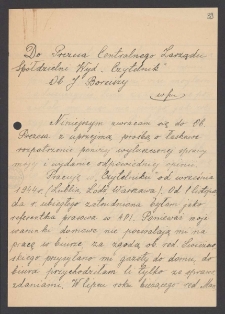 Do Prezesa Centralnego Zarządu
Spółdzielni Wyd. "Czytelnik"
Ob. J. Borejszy
w/m
Niniejszym zwracam się do Ob.
Prezesa z uprzejmą prośbą o łaskawe
rozpatrzenie poniżej wyłuszczonej sprawy
i wydanie odpowiedniej
Pracuję w "Czytelniku" od września
1944 r. (Lublin, Łódź, Warszawa). Od 1 listopa-
da r. ubiegłego zatrudniona byłam jako
referentka prasowa w Ponieważ moje
warunki domowe nie pozwalają mi na
pracę w biurze za zgodą ob. red.
gazety do domu, do
biura przychodziłam tylko ze sprawo-
zdaniami. W lipcu roku bieżącego red.